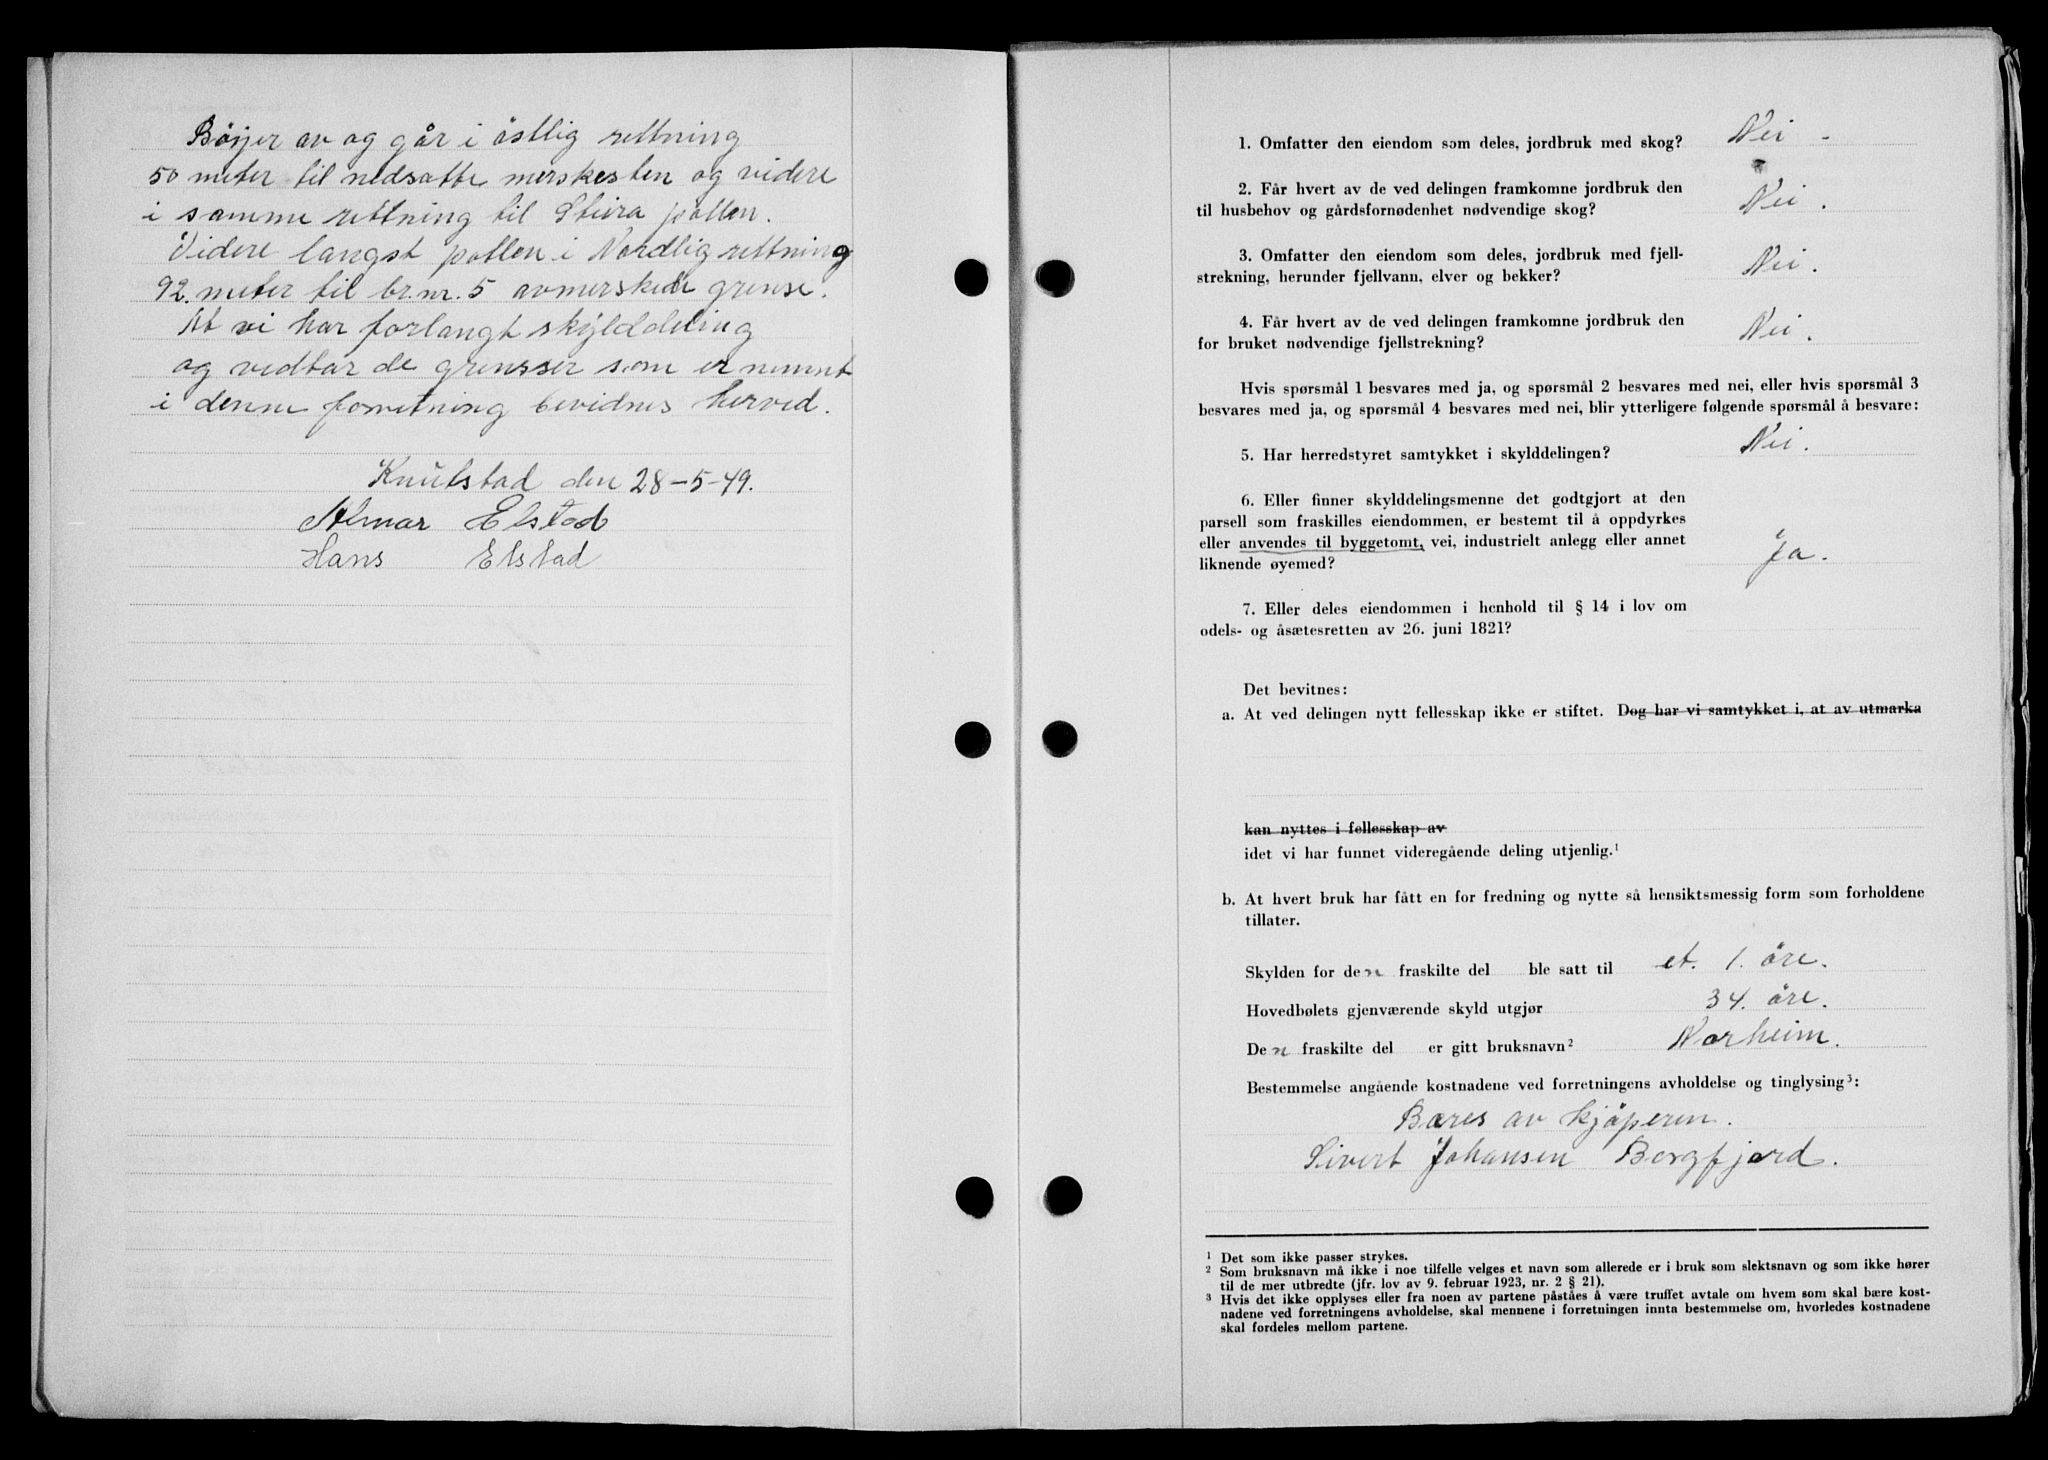 Böyer av og går i östlig rettning
50 meter til nedsatte merskesten og videre
i samme rettning til Steira pollen.
Videre langst pollen i Nordlig rettning
92. meter til br. nr. 5 avmerskede grense.
At vi har forlangt skylddeling
og vedtar de grensser som er nemnt
i denne forretning bevidnes herved.
Knutstad den 28-5-49.
Almar Elstad
Hans Elstad
1. Omfatter den eiendom som deles, jordbruk med skog? Nei -
2. Får hvert av de ved delingen framkomne jordbruk den
til husbehov og gårdsfornødenhet nødvendige skog? Nei.
3. Omfatter den eiendom som deles, jordbruk med fjell-
strekning, herunder fjellvann, elver og bekker? Nei.
4. Får hvert av de ved delingen framkomne jordbruk den
for bruket nødvendige fjellstrekning? Nei.
Hvis spørsmål 1 besvares med ja, og spørsmål 2 besvares med nei, eller hvis spørsmål 3
besvares med ja, og spørsmål 4 besvares med nei, blir ytterligere følgende spørsmål å besvare:
5. Har herredstyret samtykket i skylddelingen? Nei.
6. Eller finner skylddelingsmenne det godtgjort at den
parsell som fraskilles eiendommen, er bestemt til å oppdyrkes
eller anvendes til byggetomt, vei, industrielt anlegg eller annet
liknende øyemed? Ja.
7. Eller deles eiendommen i henhold til § 14 i lov om
odels- og åsætesretten av 26. juni 1821?
Det bevitnes:
a. At ved delingen nytt fellesskap ikke er stiftet. Dog har vi samtykket i, at av utmarka
kan nyttes i fellesskap av
idet vi har funnet videregående deling utjenlig.¹
b. At hvert bruk har fått en for fredning og nytte så hensiktsmessig form som forholdene
tillater.
Skylden for den fraskilte del ble satt til et. 1. öre.
Hovedbølets gjenværende skyld utgjør 34. öre.
Den fraskilte del er gitt bruksnavn² Norheim.
Bestemmelse angående kostnadene ved forretningens avholdelse og tinglysing³:
Bæres av kjöperen.
Sivert Johansen Borgfjord.
¹ Det som ikke passer strykes.
² Som bruksnavn må ikke i noe tilfelle velges et navn som allerede er i bruk som slektsnavn og som ikke hører
til de mer utbredte (jfr. lov av 9. februar 1923, nr. 2 § 21).
³ Hvis det ikke opplyses eller fra noen av partene påståes å være truffet avtale om hvem som skal bære kost-
nadene ved forretningens avholdelse, skal mennene i forretningen innta bestemmelse om, hvorledes kostnadene
skal fordeles mellom partene.